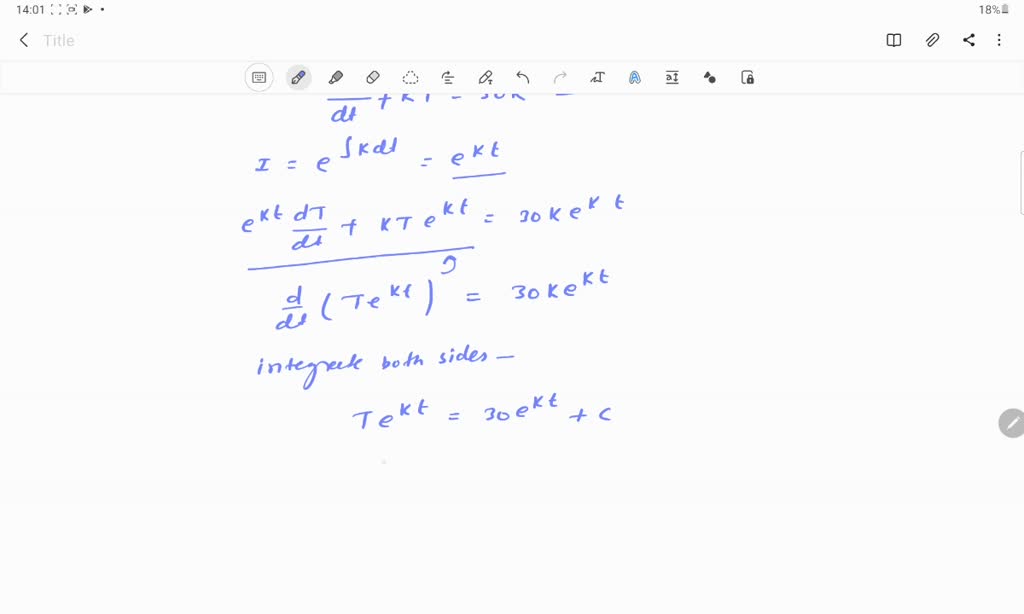 14:01 18%
Title
dt + KT = 30K
I = e^∫Kdt = e^Kt
e^Kt dT/dt + KTe^Kt = 30Ke^Kt
d/dt (Te^Kt) = 30Ke^Kt
integrate both sides —
Te^Kt = 30e^Kt + C